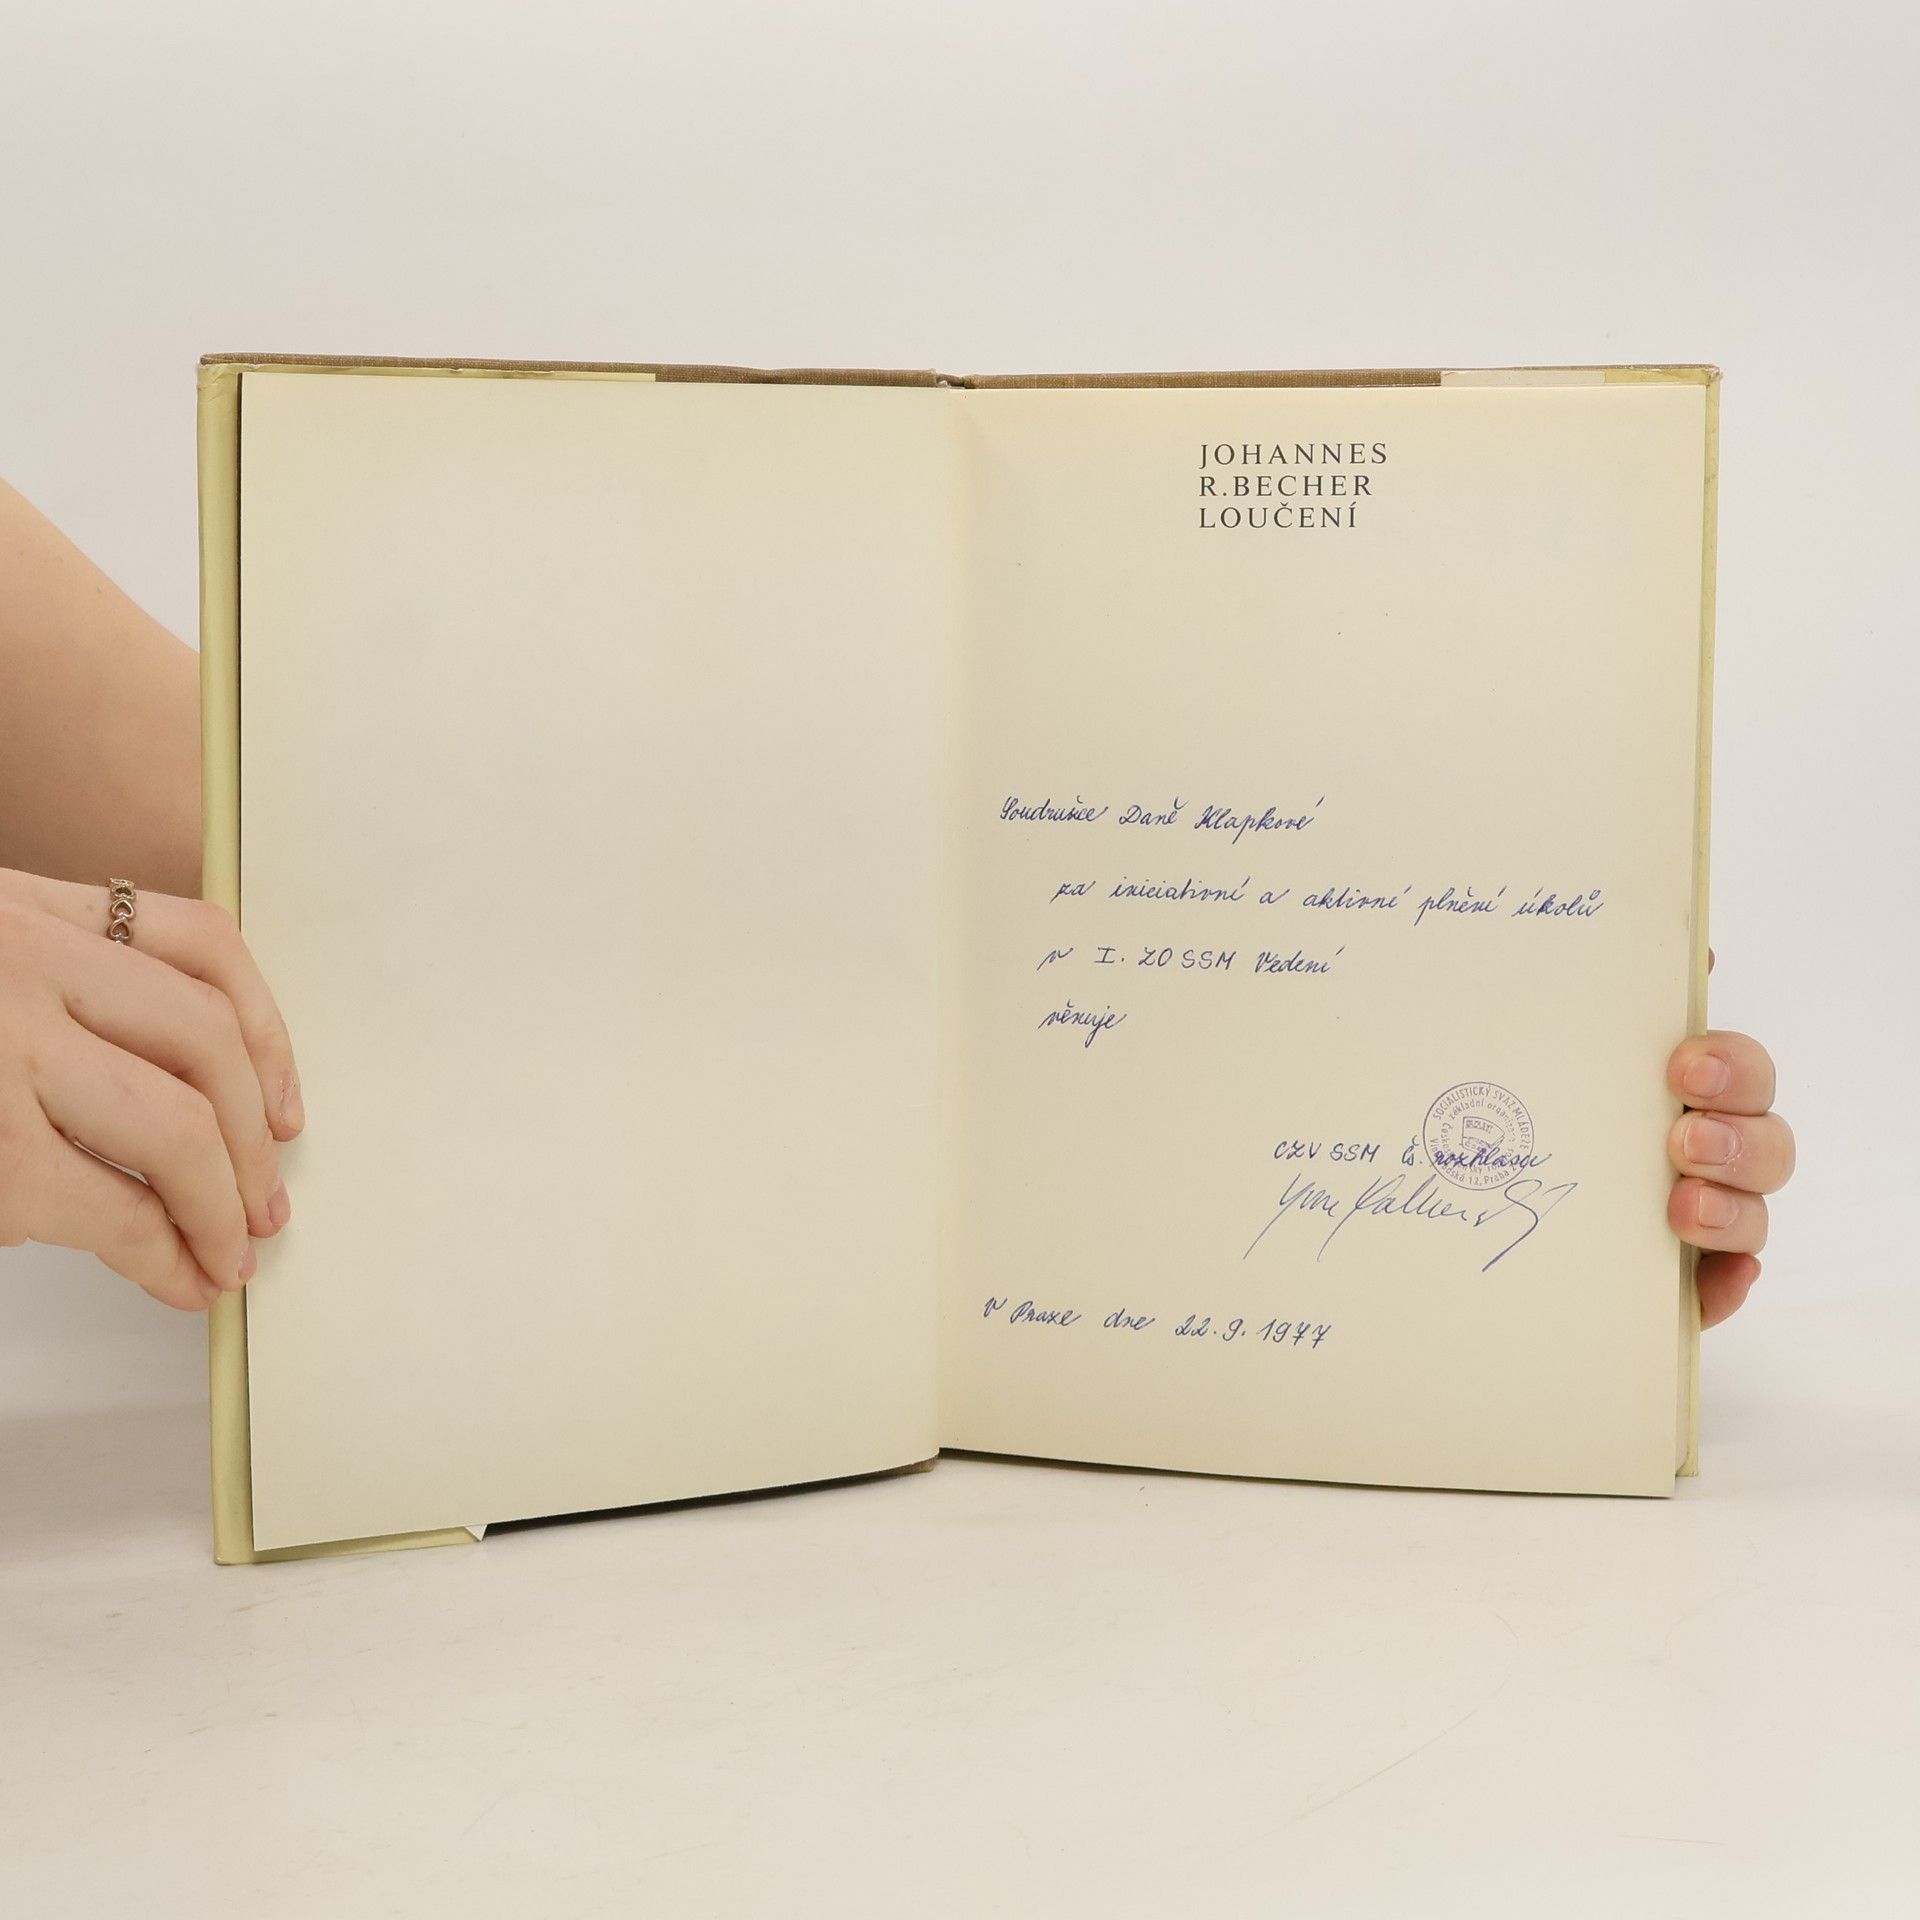 JOHANNES
R.BECHER
LOUČENÍ
Soudružce Daně Klapkové
za iniciativní a aktivní plnění úkolů
v I. ZO SSM Vedení
věnuje
SOCIALISTICKÝ SVAZ MLÁDEŽE
základní organizace
12, Praha
CZV SSM čs. rozhlasu
V Praze dne 22.9.1977